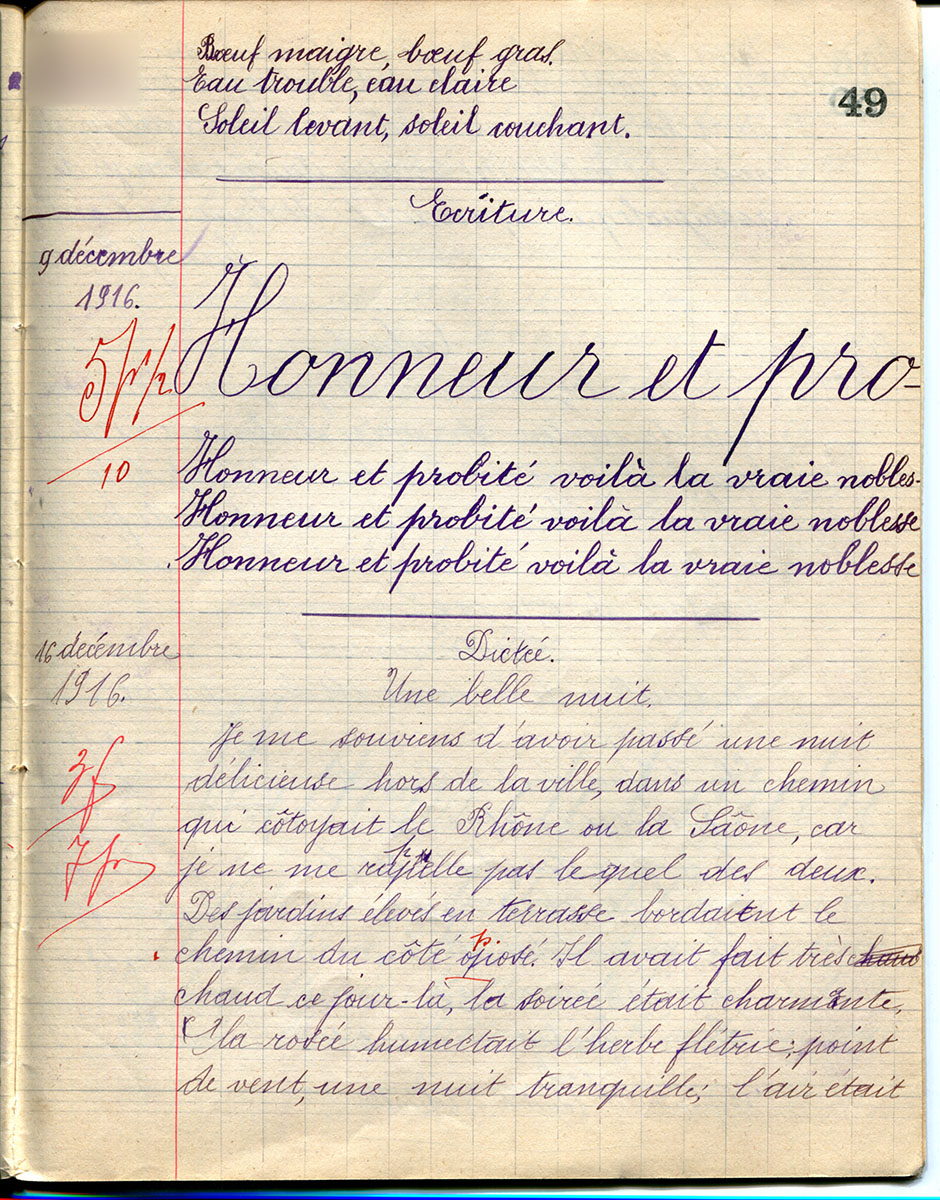 Bœuf maigre, bœuf gras.
Eau trouble, eau claire
Soleil levant, soleil couchant.
49
Ecriture.
9 décembre
1916.
Honneur et pro-
10
Honneur et probité voilà la vraie nobles-
Honneur et probité voilà la vraie noblesse
Honneur et probité voilà la vraie noblesse
16 décembre
1916.
Dictée.
Une belle nuit.
Je me souviens d'avoir passé une nuit
délicieuse hors de la ville, dans un chemin
qui côtoyait le Rhône ou la Saône, car
je ne me rappelle pas le quel des deux.
Des jardins élevés en terrasse bordaient le
chemin du côté opposé. Il avait fait très
chaud ce jour-là, la soirée était charmante,
la rosée humectait l'herbe flétrie; point
de vent, une nuit tranquille; l'air était